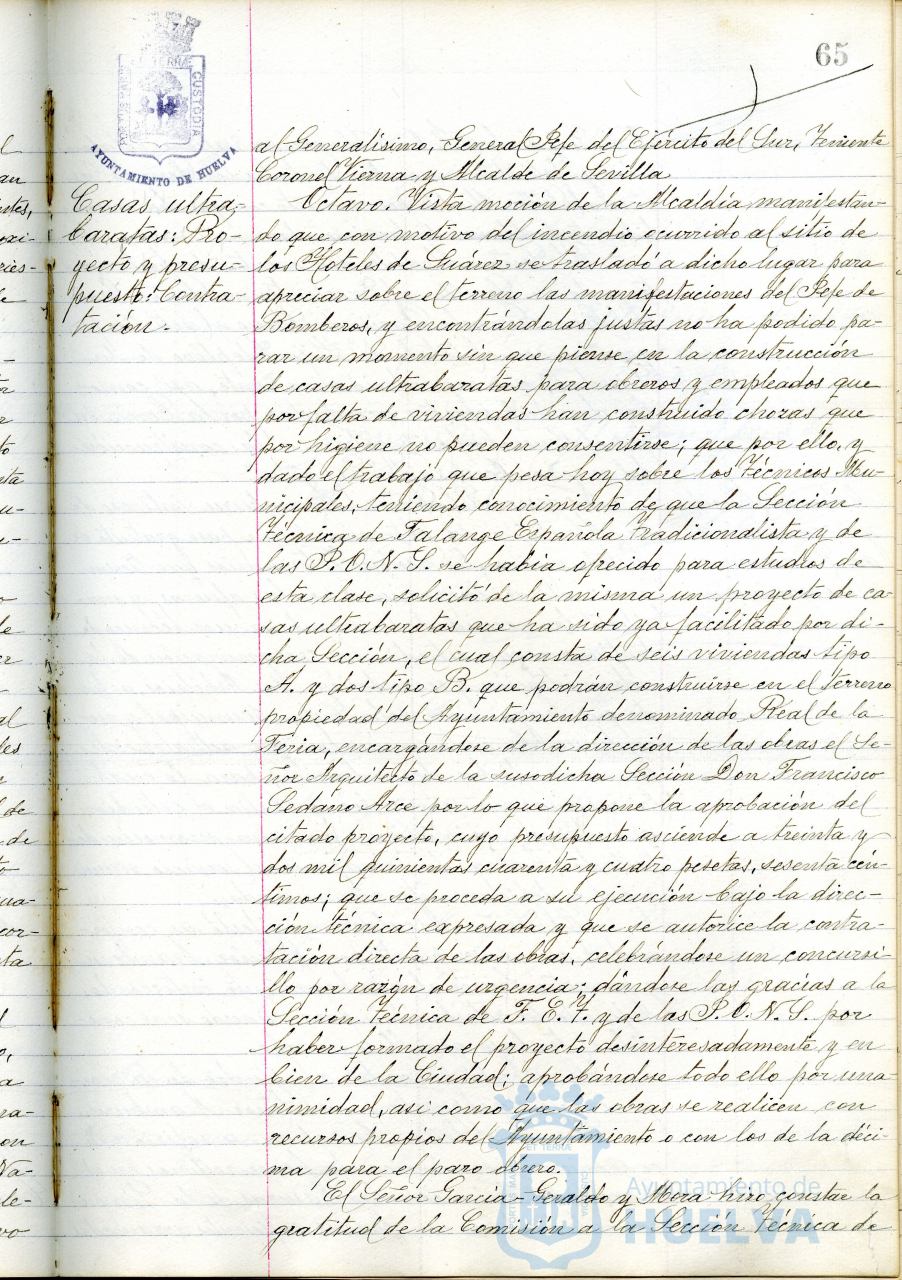 65
PORTUS MARIS ET TERRÆ CUSTODIA
AYUNTAMIENTO DE HUELVA
Casas ultra-
baratas: Pro-
yecto y presu-
puesto: Contra-
tación.-
al Generalísimo, General Jefe del Ejército del Sur, Teniente
Coronel Vierna y Alcalde de Sevilla
Octavo. Vista moción de la Alcaldía manifestan-
do que con motivo del incendio ocurrido al sitio de
los Hoteles de Suárez se trasladó a dicho lugar para
apreciar sobre el terreno las manifestaciones del Jefe de
Bomberos, y encontrándolas justas no ha podido pa-
rar un momento sin que piense en la construcción
de casas ultrabaratas para obreros y empleados que
por falta de viviendas han construido chozas que
por higiene no pueden consentirse; que por ello, y
dado el trabajo que pesa hoy sobre los Técnicos Mu-
nicipales, teniendo conocimiento de que la Sección
Técnica de Falange Española Tradicionalista y de
las J.O.N.S. se había ofrecido para estudios de
esta clase, solicitó de la misma un proyecto de ca-
sas ultrabaratas que ha sido ya facilitado por di-
cha Sección, el cual consta de seis viviendas tipo
A. y dos tipo B. que podrán construirse en el terreno
propiedad del Ayuntamiento denominado Real de la
Feria, encargándose de la dirección de las obras el Se-
ñor Arquitecto de la susodicha Sección Don Francisco
Sedano Arce por lo que propone la aprobación del
citado proyecto, cuyo presupuesto asciende a treinta y
dos mil quinientas cuarenta y cuatro pesetas, sesenta cén-
timos; que se proceda a su ejecución bajo la direc-
ción técnica expresada y que se autorice la contra-
tación directa de las obras, celebrándose un concursi-
llo por razón de urgencia; dándose las gracias a la
Sección Técnica de F.E.T. y de las J.O.N.S. por
haber formado el proyecto desinteresadamente y en
bien de la Ciudad; aprobándose todo ello por una-
nimidad, asi como que las obras se realicen con
recursos propios del Ayuntamiento o con los de la déci-
ma para el paro obrero.
El Señor García-Geraldo y Mora hizo constar la
gratitud de la Comisión a la Sección Técnica de
Ayuntamiento de
HUELVA